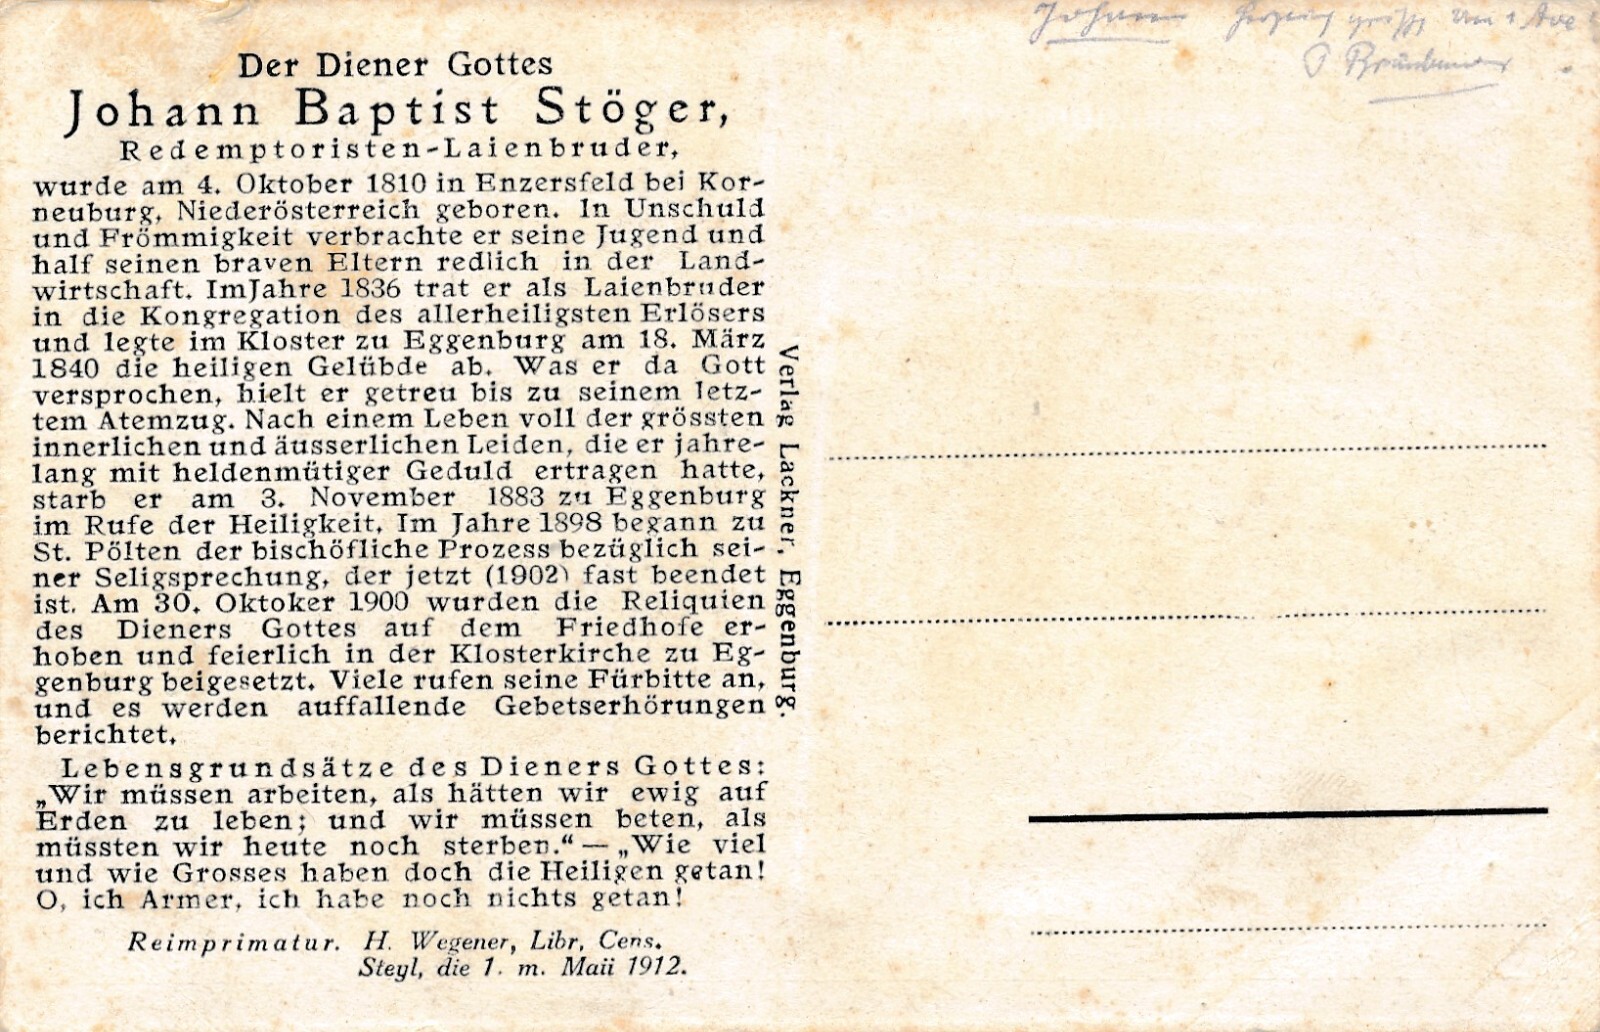 Der Diener Gottes
Johann Baptist Stöger,
Redemptoristen-Laienbruder,
wurde am 4. Oktober 1810 in Enzersfeld bei Kor-
neuburg, Niederösterreich geboren. In Unschuld
und Frömmigkeit verbrachte er seine Jugend und
half seinen braven Eltern redlich in der Land-
wirtschaft. ImJahre 1836 trat er als Laienbruder
in die Kongregation des allerheiligsten Erlösers
und legte im Kloster zu Eggenburg am 18. März
1840 die heiligen Gelübde ab. Was er da Gott
versprochen, hielt er getreu bis zu seinem letz-
tem Atemzug. Nach einem Leben voll der grössten
innerlichen und äusserlichen Leiden, die er jahre-
lang mit heldenmütiger Geduld ertragen hatte,
starb er am 3. November 1883 zu Eggenburg
im Rufe der Heiligkeit. Im Jahre 1898 begann zu
St. Pölten der bischöfliche Prozess bezüglich sei-
ner Seligsprechung, der jetzt (1902) fast beendet
ist. Am 30. Oktoker 1900 wurden die Reliquien
des Dieners Gottes auf dem Friedhofe er-
hoben und feierlich in der Klosterkirche zu Eg-
genburg beigesetzt. Viele rufen seine Fürbitte an,
und es werden auffallende Gebetserhörungen
berichtet.
Lebensgrundsätze des Dieners Gottes:
„Wir müssen arbeiten, als hätten wir ewig auf
Erden zu leben; und wir müssen beten, als
müssten wir heute noch sterben.“ — „Wie viel
und wie Grosses haben doch die Heiligen getan!
O, ich Armer, ich habe noch nichts getan!
Reimprimatur. H. Wegener, Libr, Cens.
Steyl, die 1. m. Maii 1912.
Verlag Lackner, Eggenburg.
Johann